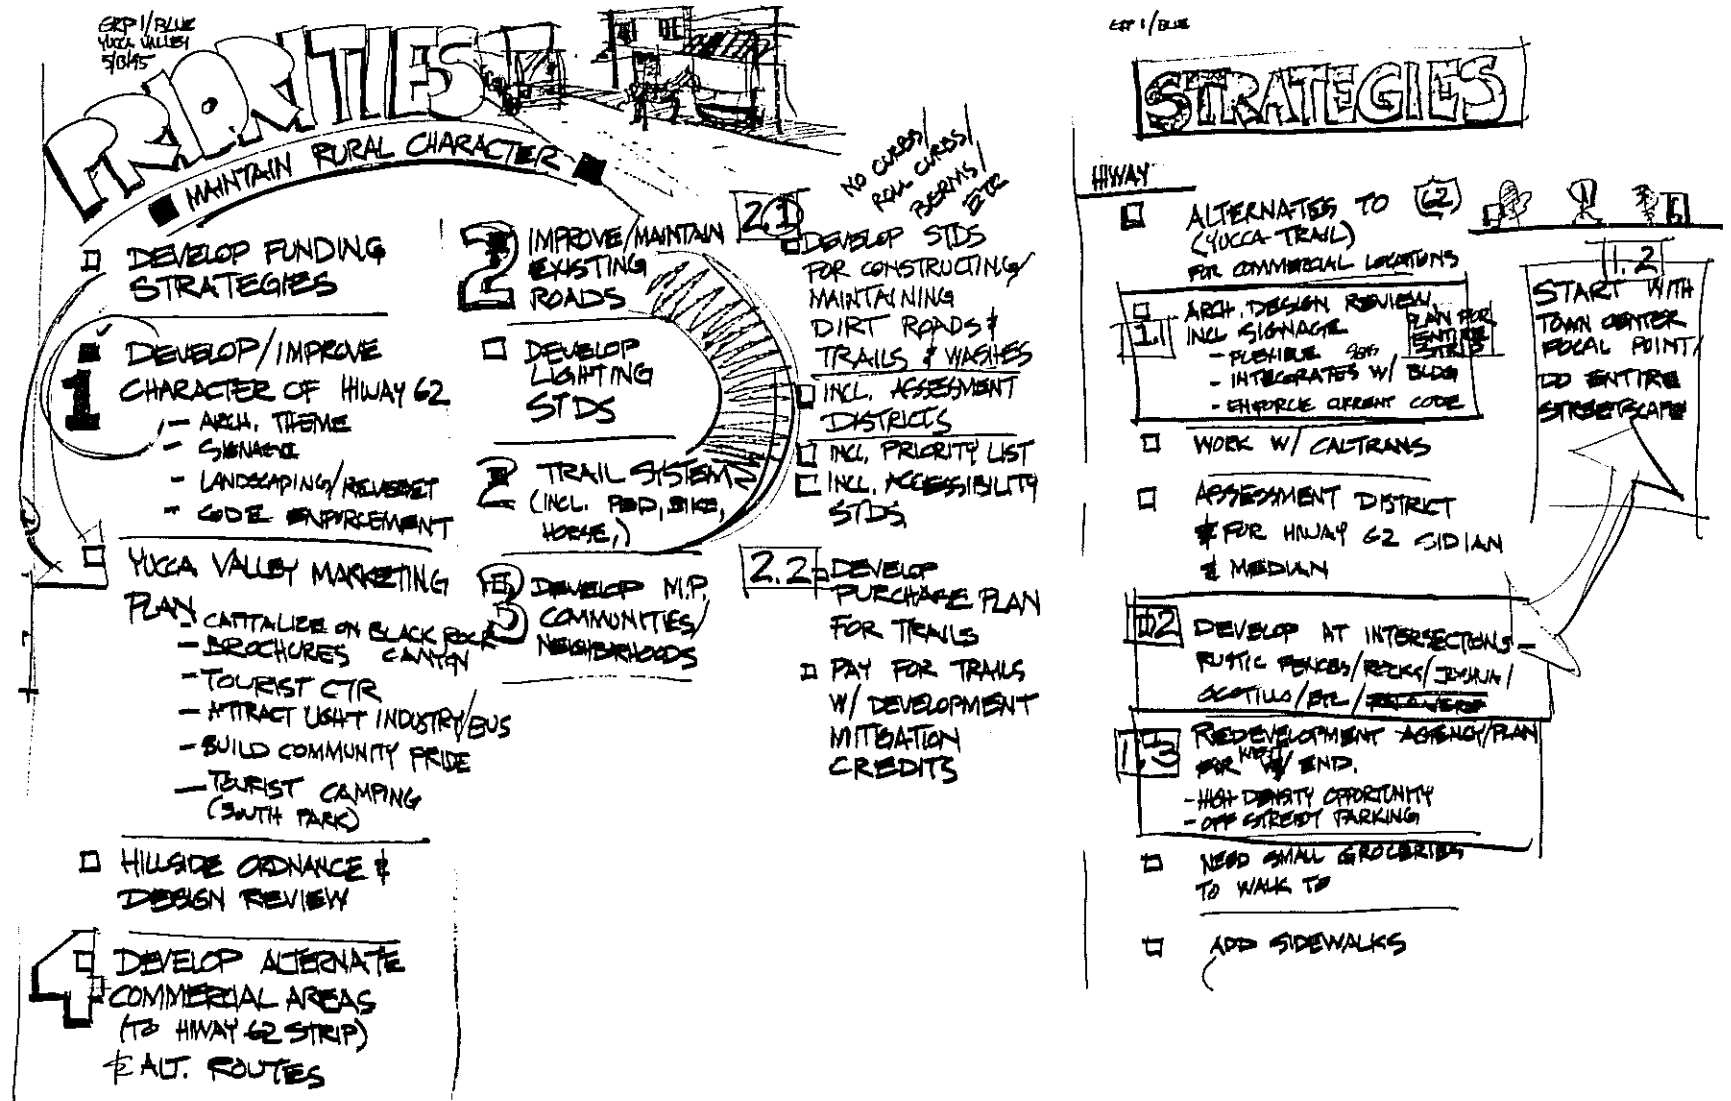 GRP 1/BLUE
YUCCA VALLEY
5/13/95
PRIORITIES
MAINTAIN RURAL CHARACTER
DEVELOP FUNDING
STRATEGIES
1
DEVELOP/IMPROVE
CHARACTER OF HIWAY 62
- ARCH. THEME
- SIGNAGE
- LANDSCAPING/
- CODE ENFORCEMENT
YUCCA VALLEY MARKETING
PLAN
- CAPITALIZE ON BLACK ROCK
CANYON
- BROCHURES
- TOURIST CTR
- ATTRACT LIGHT INDUSTRY/BUS
- BUILD COMMUNITY PRIDE
- TOURIST CAMPING
(SOUTH PARK)
HILLSIDE ORDNANCE &
DESIGN REVIEW
4
DEVELOP ALTERNATE
COMMERCIAL AREAS
(TO HIWAY 62 STRIP)
& ALT. ROUTES
2
IMPROVE/MAINTAIN
EXISTING
ROADS
DEVELOP
LIGHTING
STDS
2
TRAIL SYSTEM
(INCL. PED, BIKE,
HORSE,)
3
DEVELOP M.P.
COMMUNITIES/
NEIGHBORHOODS
NO CURBS/
ROLL CURBS/
BERMS/
ETC
2.1
DEVELOP STDS
FOR CONSTRUCTING/
MAINTAINING
DIRT ROADS &
TRAILS & WASHES
INCL. ASSESSMENT
DISTRICTS
INCL. PRIORITY LIST
INCL. ACCESSIBILITY
STDS
2.2
DEVELOP
PURCHASE PLAN
FOR TRAILS
PAY FOR TRAILS
W/ DEVELOPMENT
MITIGATION
CREDITS
GRP 1/BLUE
STRATEGIES
HIWAY
ALTERNATES TO 62
(YUCCA TRAIL)
FOR COMMERCIAL LOCATIONS
1.1
ARCH. DESIGN REVIEW,
INCL SIGNAGE
- FLEXIBLE
- INTEGRATES W/ BLDG
- ENFORCE CURRENT CODE
PLAN FOR
ENTIRE
STRIP
WORK W/ CALTRANS
ASSESSMENT DISTRICT
FOR HIWAY 62
& MEDIAN
1.2
DEVELOP AT INTERSECTIONS -
RUSTIC FENCES/ROCKS/JOSHUA/
OCOTILLO/ETC/
1.3
REDEVELOPMENT AGENCY/PLAN
FOR WEST END.
- HIGH DENSITY OPPORTUNITY
- OFF STREET PARKING
NEED SMALL GROCERIES
TO WALK TO
ADD SIDEWALKS
1.2
START WITH
TOWN CENTER
FOCAL POINT/
DO ENTIRE
STREETSCAPE